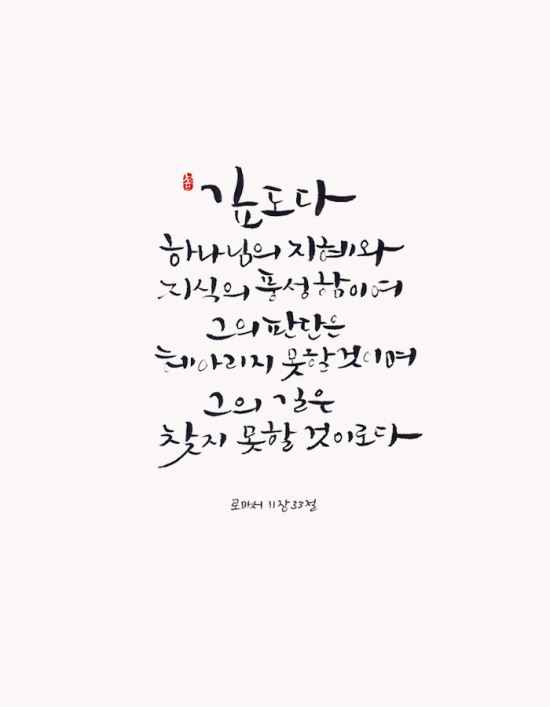 깊도다
하나님의 지혜와
지식의 풍성함이여
그의 판단은
헤아리지 못할것이며
그의 길은
찾지 못할 것이로다
로마서 11장 33절